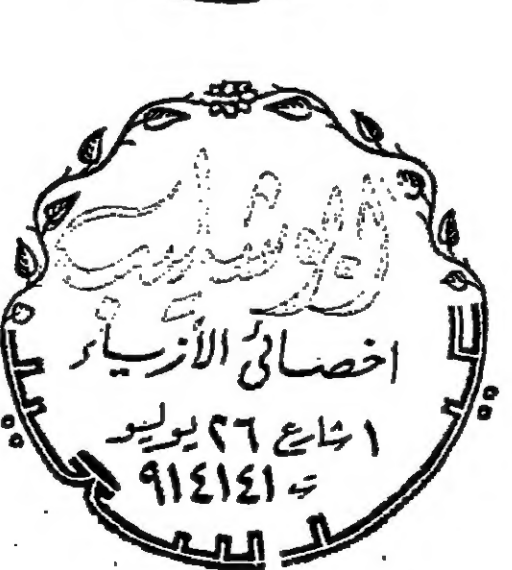 اخصائى الأزياء
١ شارع ٢٦ يوليو
ت ٩١٤١٤١